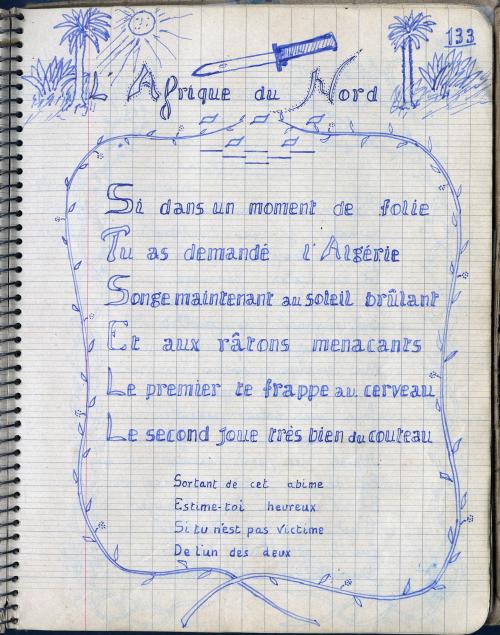 133
L'Afrique du Nord
Si dans un moment de folie
Tu as demandé l'Algérie
Songe maintenant au soleil brûlant
Et aux râtons menacants
Le premier te frappe au cerveau
Le second joue très bien du couteau
Sortant de cet abime
Estime-toi heureux
Si tu n'est pas victime
De l'un des deux